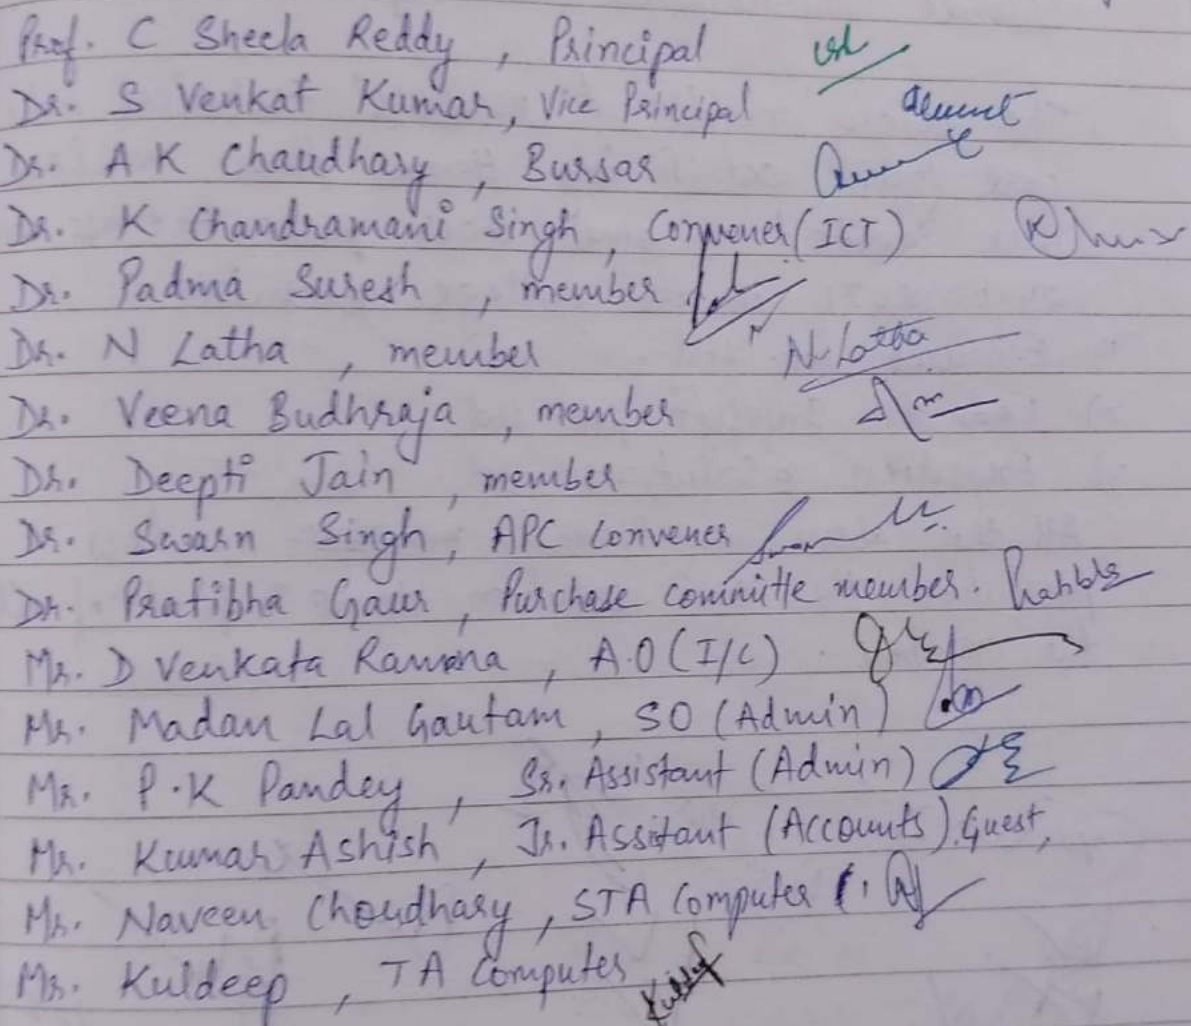 Prof. C Sheela Reddy, Principal
Dr. S Venkat Kumar, Vice Principal
Dr. A K Chaudhary, Bursar
Dr. K Chandramani Singh, Convener (ICT)
Dr. Padma Suresh, member
Dr. N Latha, member N. Latha
Dr. Veena Budhraja, member
Dr. Deepti Jain, member
Dr. Swarn Singh, APC Convener
Dr. Pratibha Gaur, Purchase committe member.
Mr. D Venkata Ramana, A.O (I/C)
Mr. Madan Lal Gautam, SO (Admin)
Mr. P.K Pandey, Sr. Assistant (Admin)
Mr. Kumar Ashish, Jr. Assitant (Accounts) Guest,
Mr. Naveen Choudhary, STA Computer
Mr. Kuldeep, TA Computer Kuldeep